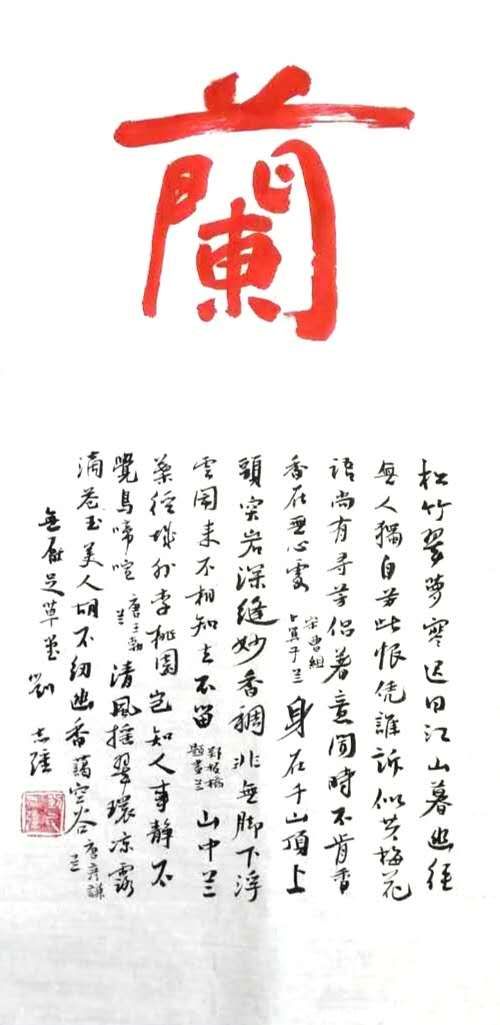 蘭
松竹翠萝寒迟日江山暮幽径
無人獨自芳此恨凭誰訴似共梅花
語尚有尋芳侣著意聞時不肯香
香在無心處 宋曹組卜算子兰 身在千山頂上
頭突岩深缝妙香稠非無脚下浮
雲闹来不相知去不留 鄭板橋題畫兰 山中兰
葉徑城外李桃園岂知人事静不
覺鳥啼喧 唐王勃兰 清風摇翠環凉露
滴苍玉美人胡不纫幽香藹空谷 唐彦謙兰
無厭足草堂 劉志强